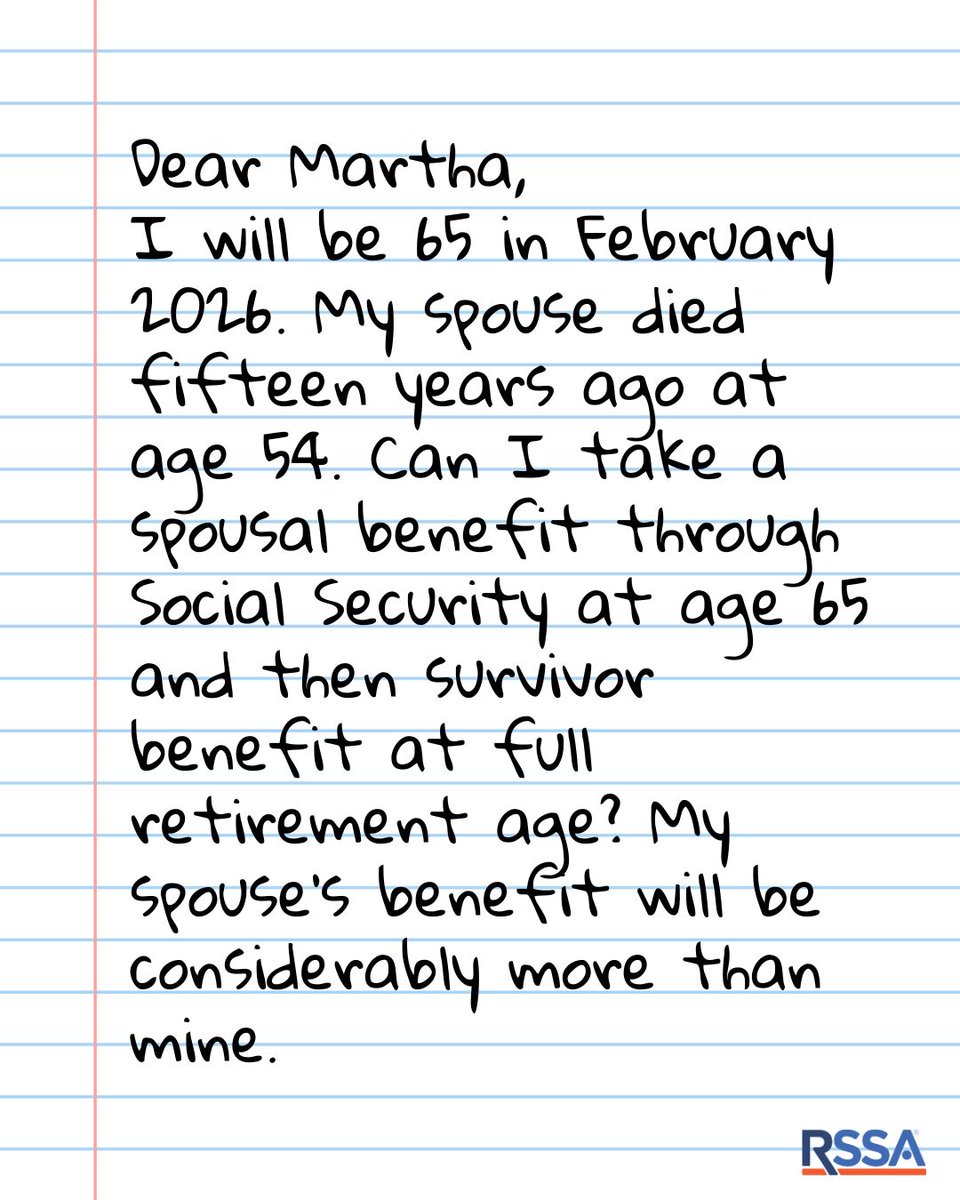 Dear Martha,
I will be 65 in February
2026. My spouse died
fifteen years ago at
age 54. Can I take a
spousal benefit through
Social Security at age 65
and then survivor
benefit at full
retirement age? My
spouse's benefit will be
considerably more than
mine.
RSSA